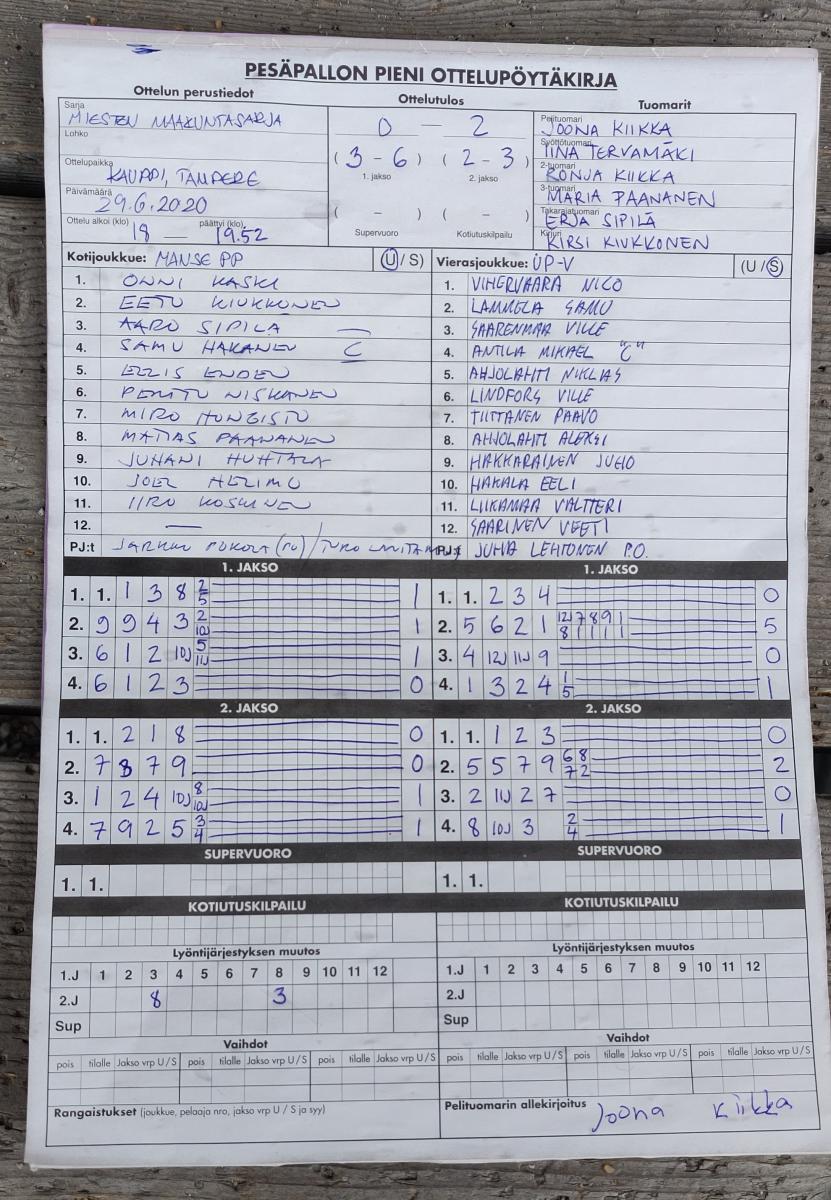 PESÄPALLON PIENI OTTELUPÖYTÄKIRJA
Ottelun perustiedot
Ottelutulos
Tuomarit
Sarja
MIESTEN MAAKUNTASARJA
Lohko
Ottelupaikka
KAUPPI, TAMPERE
Päivämäärä
29.6.2020
Ottelu alkoi (klo) 18 — päättyi (klo) 19.52
0 — 2
(3 - 6) (2 - 3)
1. jakso 2. jakso
( - ) ( - )
Supervuoro Kotiutuskilpailu
Pelituomari
JOONA KIIKKA
Syöttötuomari
IINA TERVAMÄKI
2-tuomari
RONJA KIIKKA
3-tuomari
MARIA PAANANEN
Takarajatuomari
ERJA SIPILÄ
Kirjuri
KIRSI KIUKKONEN
Kotijoukkue: MANSE PP (U / S)
1. ONNI KASKI
2. EETU KIUKKONEN
3. AARO SIPILA
4. SAMU HAKANEN C
5. EELIS ENDEN
6. PENTTU NISKANEN
7. MIRO HONGISTO
8. MATIAS PAANANEN
9. JUHANI HUHTALA
10. JOEL HELIMO
11. IIRO KOSKINEN
12. —
PJ:t JARKKO POKOLA (PJ) /
Vierasjoukkue: UP-V (U / S)
1. VIHERVAARA NICO
2. LAMMELA SAMU
3. SAARENMAA VILLE
4. ANTILA MIKAEL "C"
5. AHJOLAHTI NIKLAS
6. LINDFORS VILLE
7. TIITTANEN PAAVO
8. AHJOLAHTI ALEKSI
9. HAKKARAINEN JUHO
10. HAKALA EELI
11. LIIKAMAA VALTTERI
12. SAARINEN VEETI
PJ:t JUHA LEHTONEN P.O.
1. JAKSO
1. 1. 1 3 8 2/5 1
2. 9 9 4 3 2/10J 1
3. 6 1 2 10J 5/11J 1
4. 6 1 2 3 0
1. JAKSO
1. 1. 2 3 4 0
2. 5 6 2 1 12J/8 7/1 8/1 9/1 1/1 5
3. 4 12J 11J 9 0
4. 1 3 2 4 1/5 1
2. JAKSO
1. 1. 2 1 8 0
2. 7 8 7 9 0
3. 1 2 4 10J 8/10J 1
4. 7 9 2 5 3/4 1
2. JAKSO
1. 1. 1 2 3 0
2. 5 5 7 9 6/7 8/2 2
3. 2 11J 2 7 0
4. 8 10J 3 2/4 1
SUPERVUORO
1. 1.
SUPERVUORO
1. 1.
KOTIUTUSKILPAILU
KOTIUTUSKILPAILU
Lyöntijärjestyksen muutos
1.J 1 2 3 4 5 6 7 8 9 10 11 12
2.J 8 3
Sup
Lyöntijärjestyksen muutos
1.J 1 2 3 4 5 6 7 8 9 10 11 12
2.J
Sup
Vaihdot
pois tilalle Jakso vrp U / S pois tilalle Jakso vrp U / S pois tilalle Jakso vrp U / S
Vaihdot
pois tilalle Jakso vrp U / S pois tilalle Jakso vrp U / S pois tilalle Jakso vrp U / S
Rangaistukset (joukkue, pelaaja nro, jakso vrp U / S ja syy)
Pelituomarin allekirjoitus Joona Kiikka